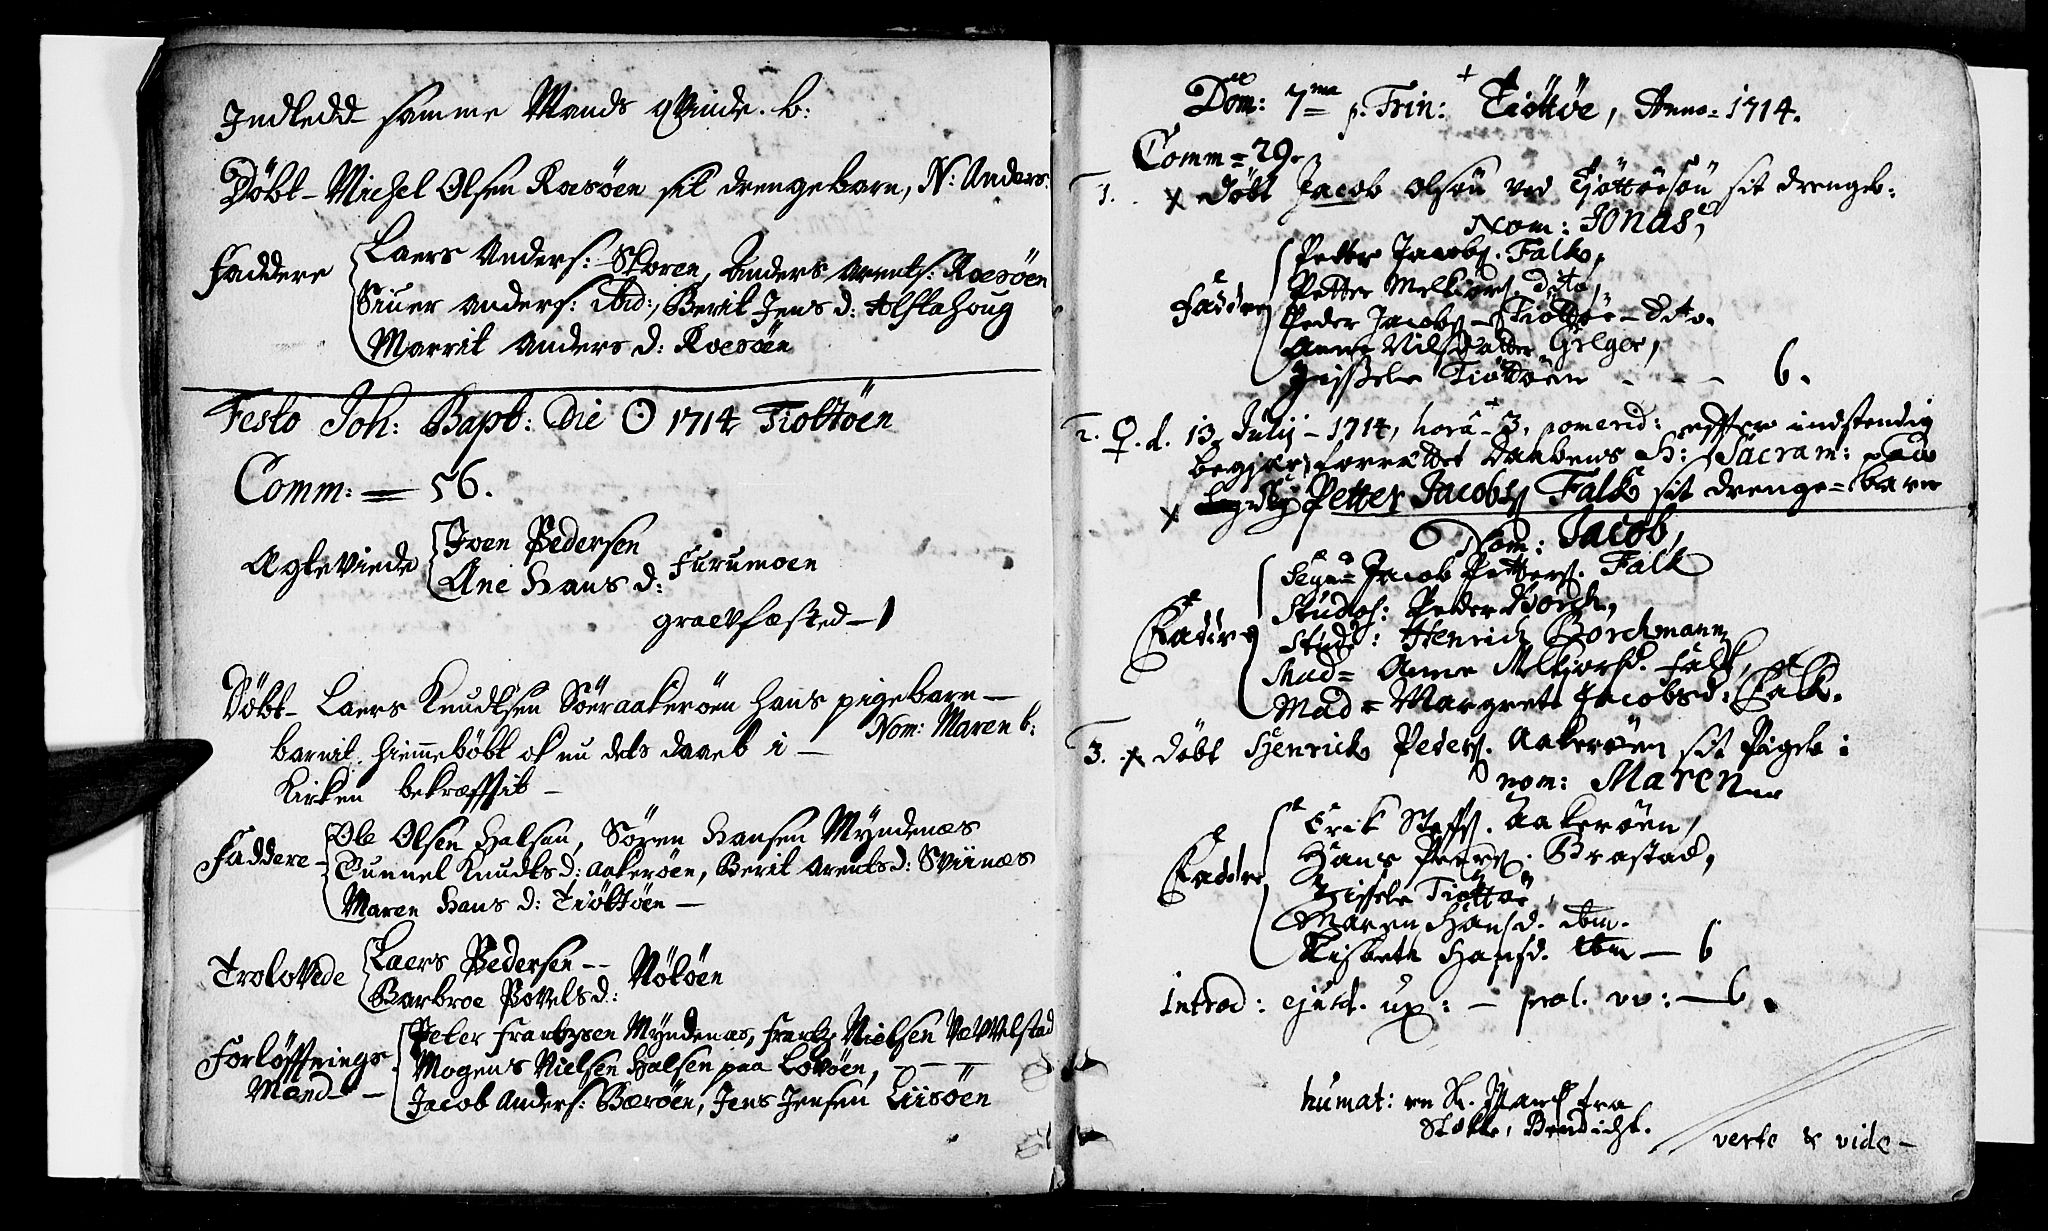 Indledd samme Mands qvinde. b:
Döbt - Michel Olsen Roesöen sit drengebarn, N: Anders:
Faddere
Laers Anders: Skoren, Anders Arents: Roesöen
Siuer Anders: ibid:, Berit Jens d: Alstahoug
Marrit Anders d: Roesöen
Festo Joh: Bapt: Die ☉ 1714 Tiottöen
Comm: = 56.
Ægteviede
Joen Pedersen
Ane Hans d:
Furumoen
graevfæsted - 1
Döbt - Laers Knudtsen Söeraakeröen hans pigebarn -
Nom: Maren b:
barnit hiemmedöbt ok nu dets daab i -
Kirken bekræfftit -
Faddere -
Ole Olsen Halsen, Sören Hansen Myndenæs
Gunnel Knudts d: Aakeröen, Berit Arents d: Sviinæs
Maren Hans d: Tiöttöen -
Trolovede
Laers Pedersen --
Barbroe Povels d:
Rököen
Forlöffnings
Mænd -
Peter Frantzsen Myndenæs, Frantz Nielsen Vævelstad
Mogens Nielsen Halsen paa Lovöen, - - -
Jacob Anders: Bæröen, Jens Jensen Liisöen
Dom: 7ma p. Trin: Tiöttöe, Anno = 1714.
Comm = 29.
1. x döbt Jacob Olsön ved Tjöttöesön sit drengeb:
Nom: Jonas,
Faddre
Petter Jacobs. Falk,
Petter Melkiors. dito,
Peder Jacobs - Tiöttöe - dito.
Anne Nilsdatter Gilgee,
Zissele Tiöttöen - - - 6.
2. ♀. d. 13 Julij - 1714, hora 3. pomerid: effter indstendig
begjær, forrættet Daabens H: Sacram: paa
x Petter Jacobs Falk sit drenge = barn
Nom: Jacob,
Faddre
Segn = Jacob Petters. Falk
Studios: Peder Borch,
Stud: Henrich Borchmann
Mad = Anne Melkiorsd. Falk,
Mad = Margrete Jacobsd: Falk.
3. x döbt Henrick Peders. Aakeröen sit Pigeb:
nom: Maren
Faddre
Erick Steffs. Aakeröen,
Hans Peders. Brastad,
Zissele Tiöttöe,
Maren Hansd. ibm.
Lisbeth Hansd. ibm - 6
Introd: ejusd. ux: - - 6.
humat: en fra
Stokke, Bendicht.
verte & vide -